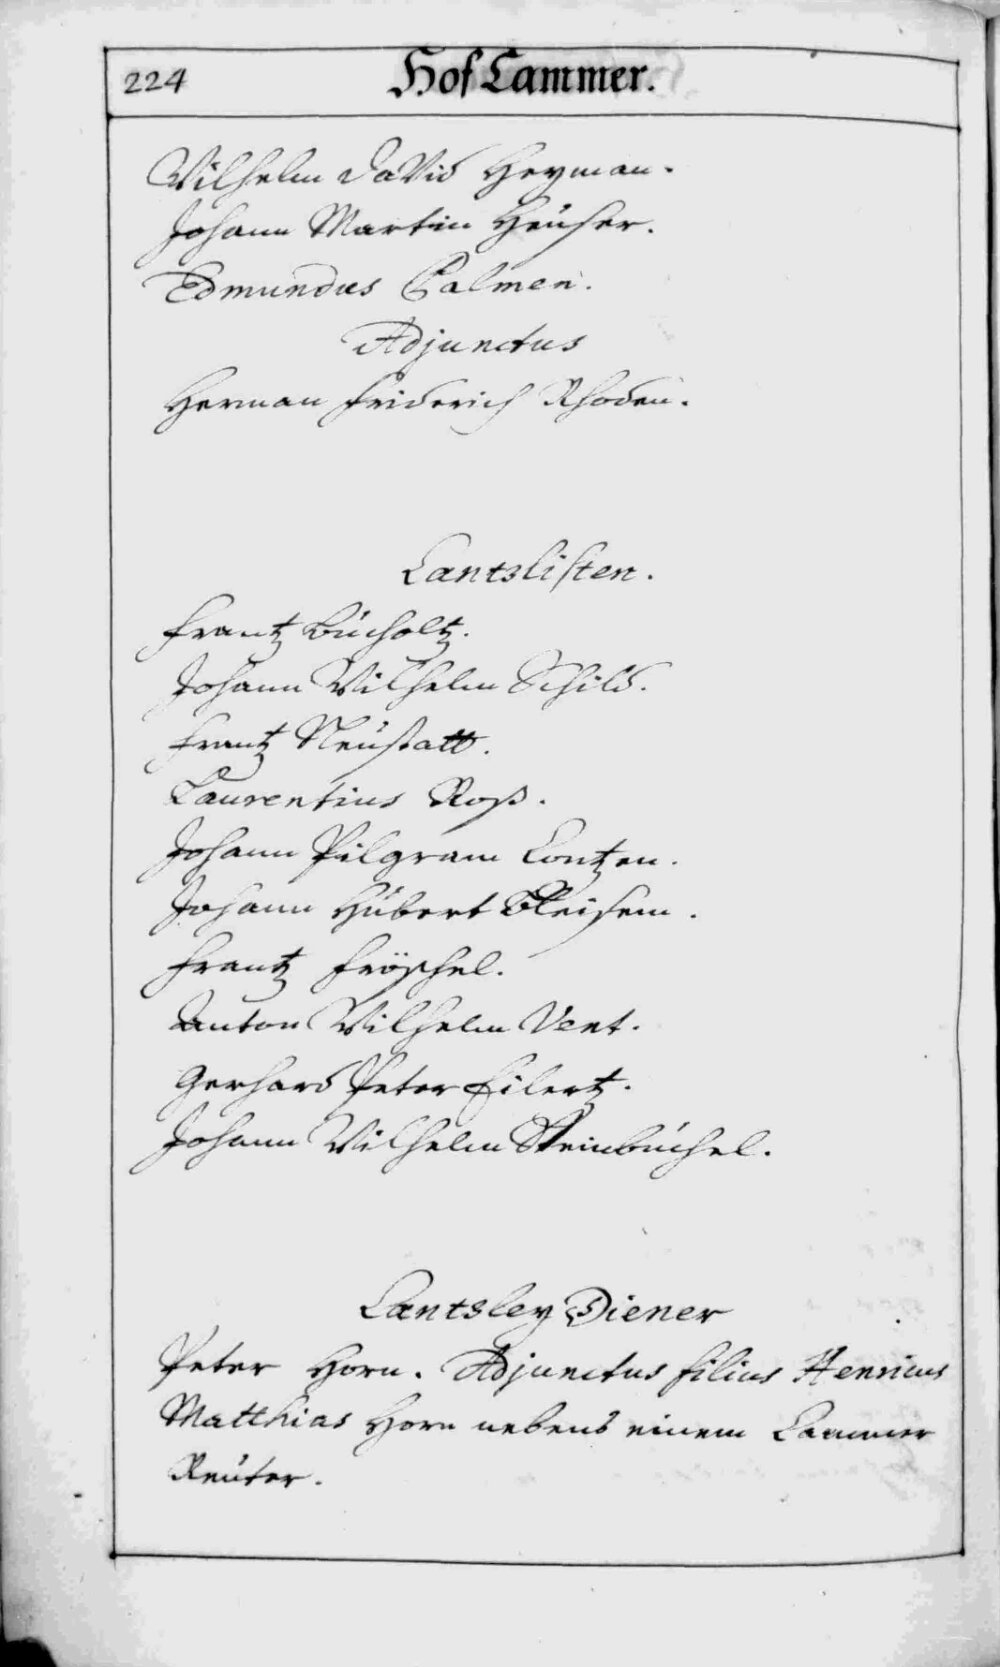 224
Hof Cammer.
Wilhelm David Heyman.
Johann Martin Heuser.
Edmundus Palmen.
Adjunctus
Herman Friderich Rhoden.
Cantzlisten.
Frantz Bücholtz.
Johann Wilhelm Schild.
Frantz Neustatt.
Laurentius Roß.
Johann Pilgram Contzen.
Johann Hübert Bleisem.
Frantz Fröschel.
Anton Wilhelm Vent.
Gerhard Peter Eilertz.
Johann Wilhelm Steinbüchel.
Cantzley Diener
Peter Horn. Adjunctus filius Henricus
Matthias Horn nebens einem Cammer
Reuter.